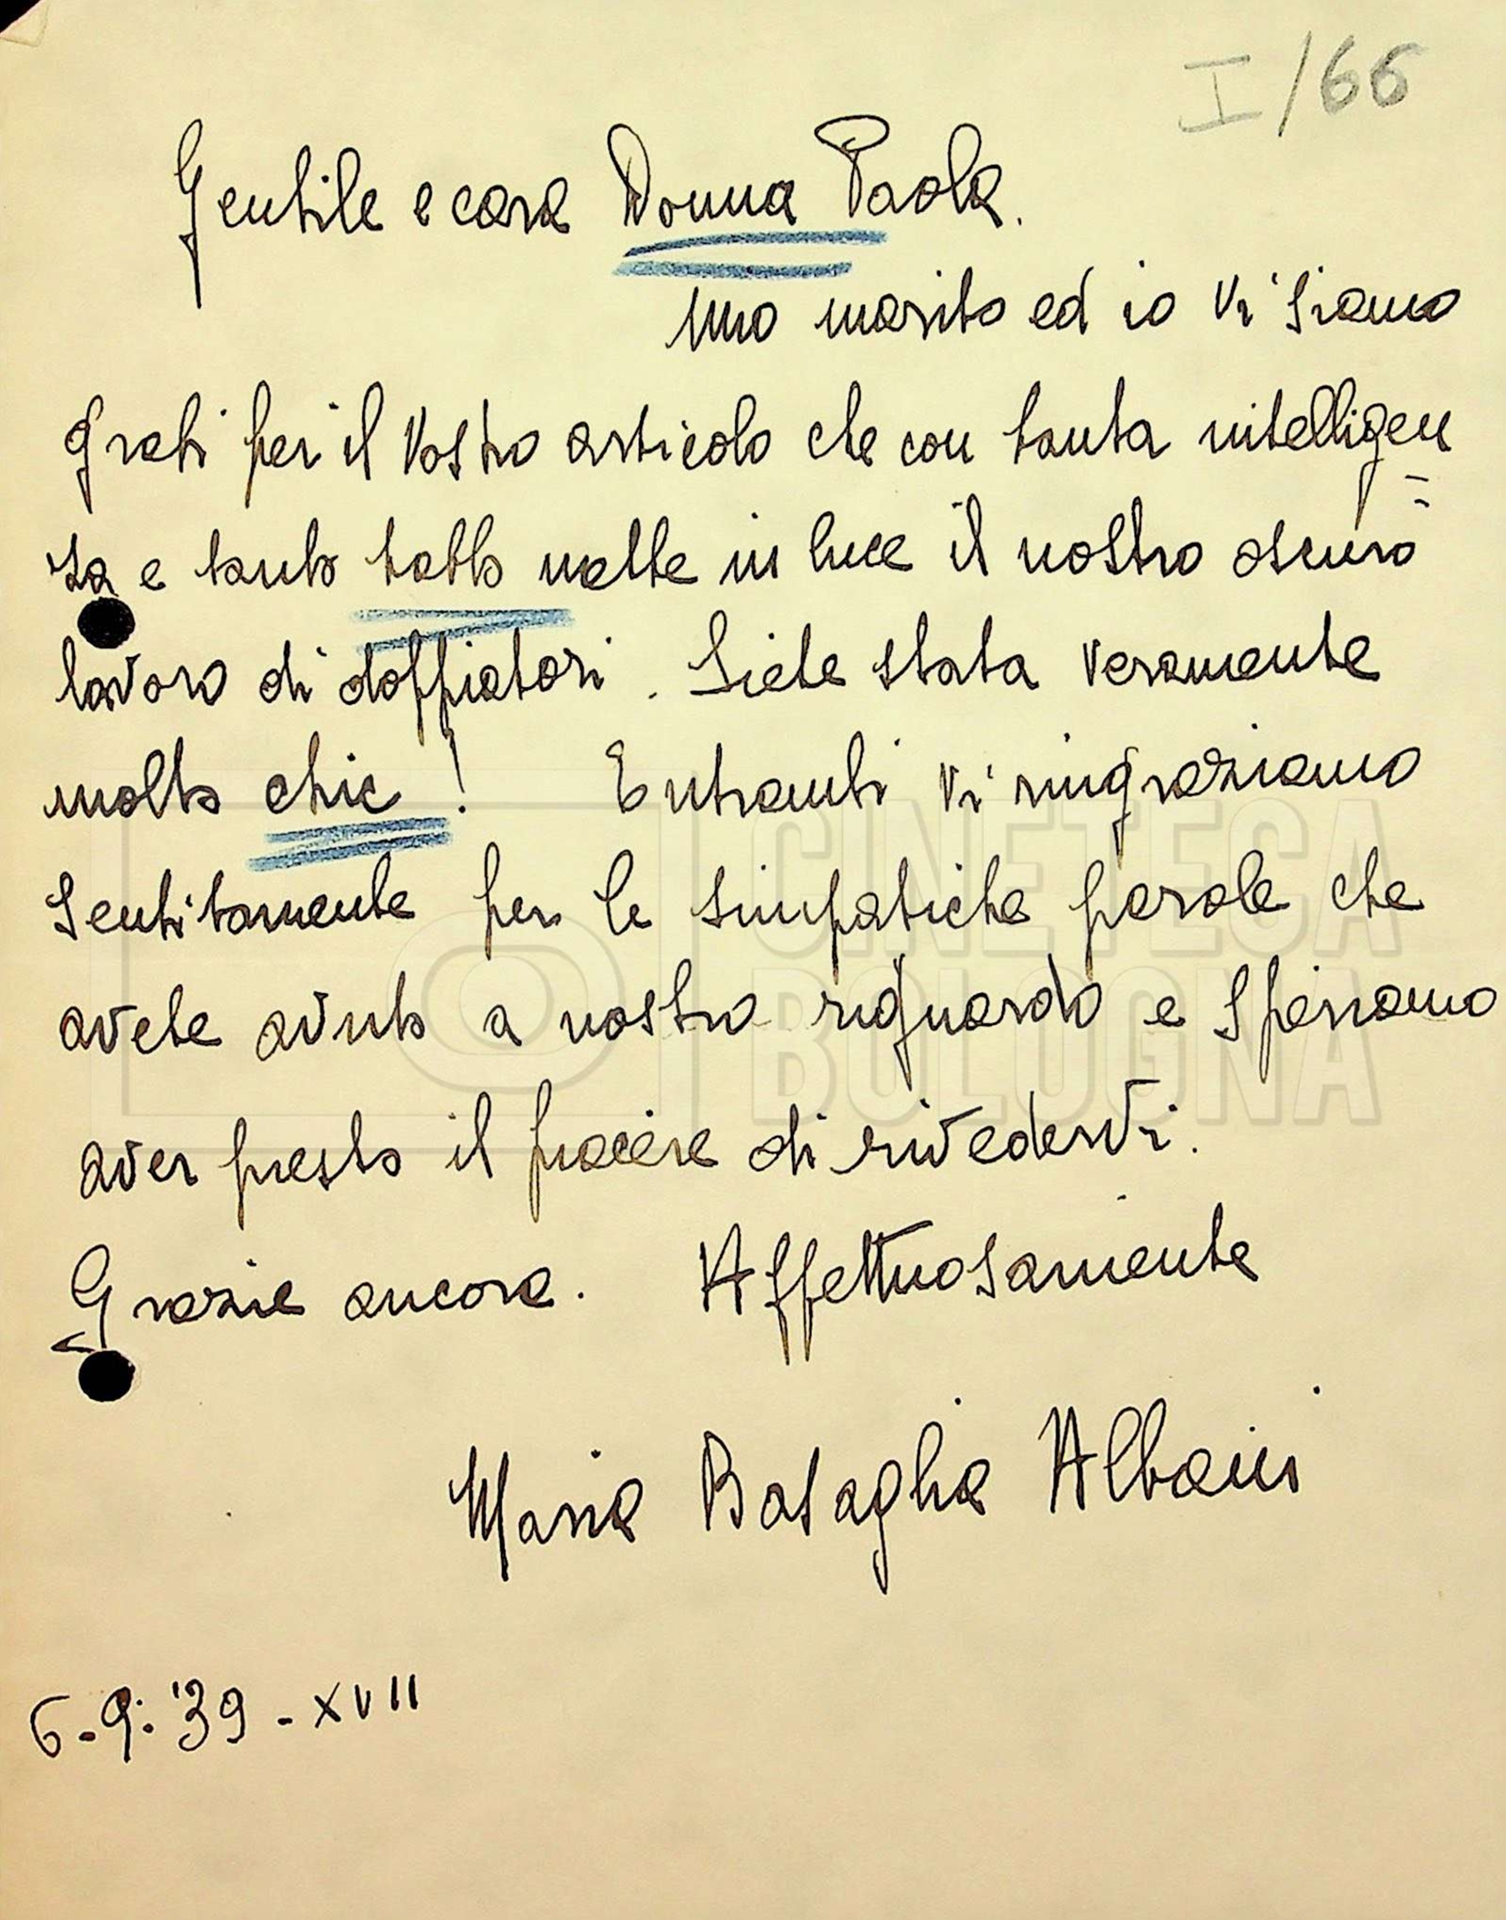 I/66
Gentile e cara Donna Paola.
Mio marito ed io Vi siamo
grati per il Vostro articolo che con tanta intelligen=
za e tanto tatto mette in luce il nostro oscuro
lavoro di doppiatori. Siete stata veramente
molto chic! Entrambi Vi ringraziamo
sentitamente per le simpatiche parole che
avete avuto a nostro riguardo e speriamo
aver presto il piacere di rivedervi.
Grazie ancora. Affettuosamente
Maria Basaglia Albani
6-9:'39-XVII
CINETECA
BOLOGNA